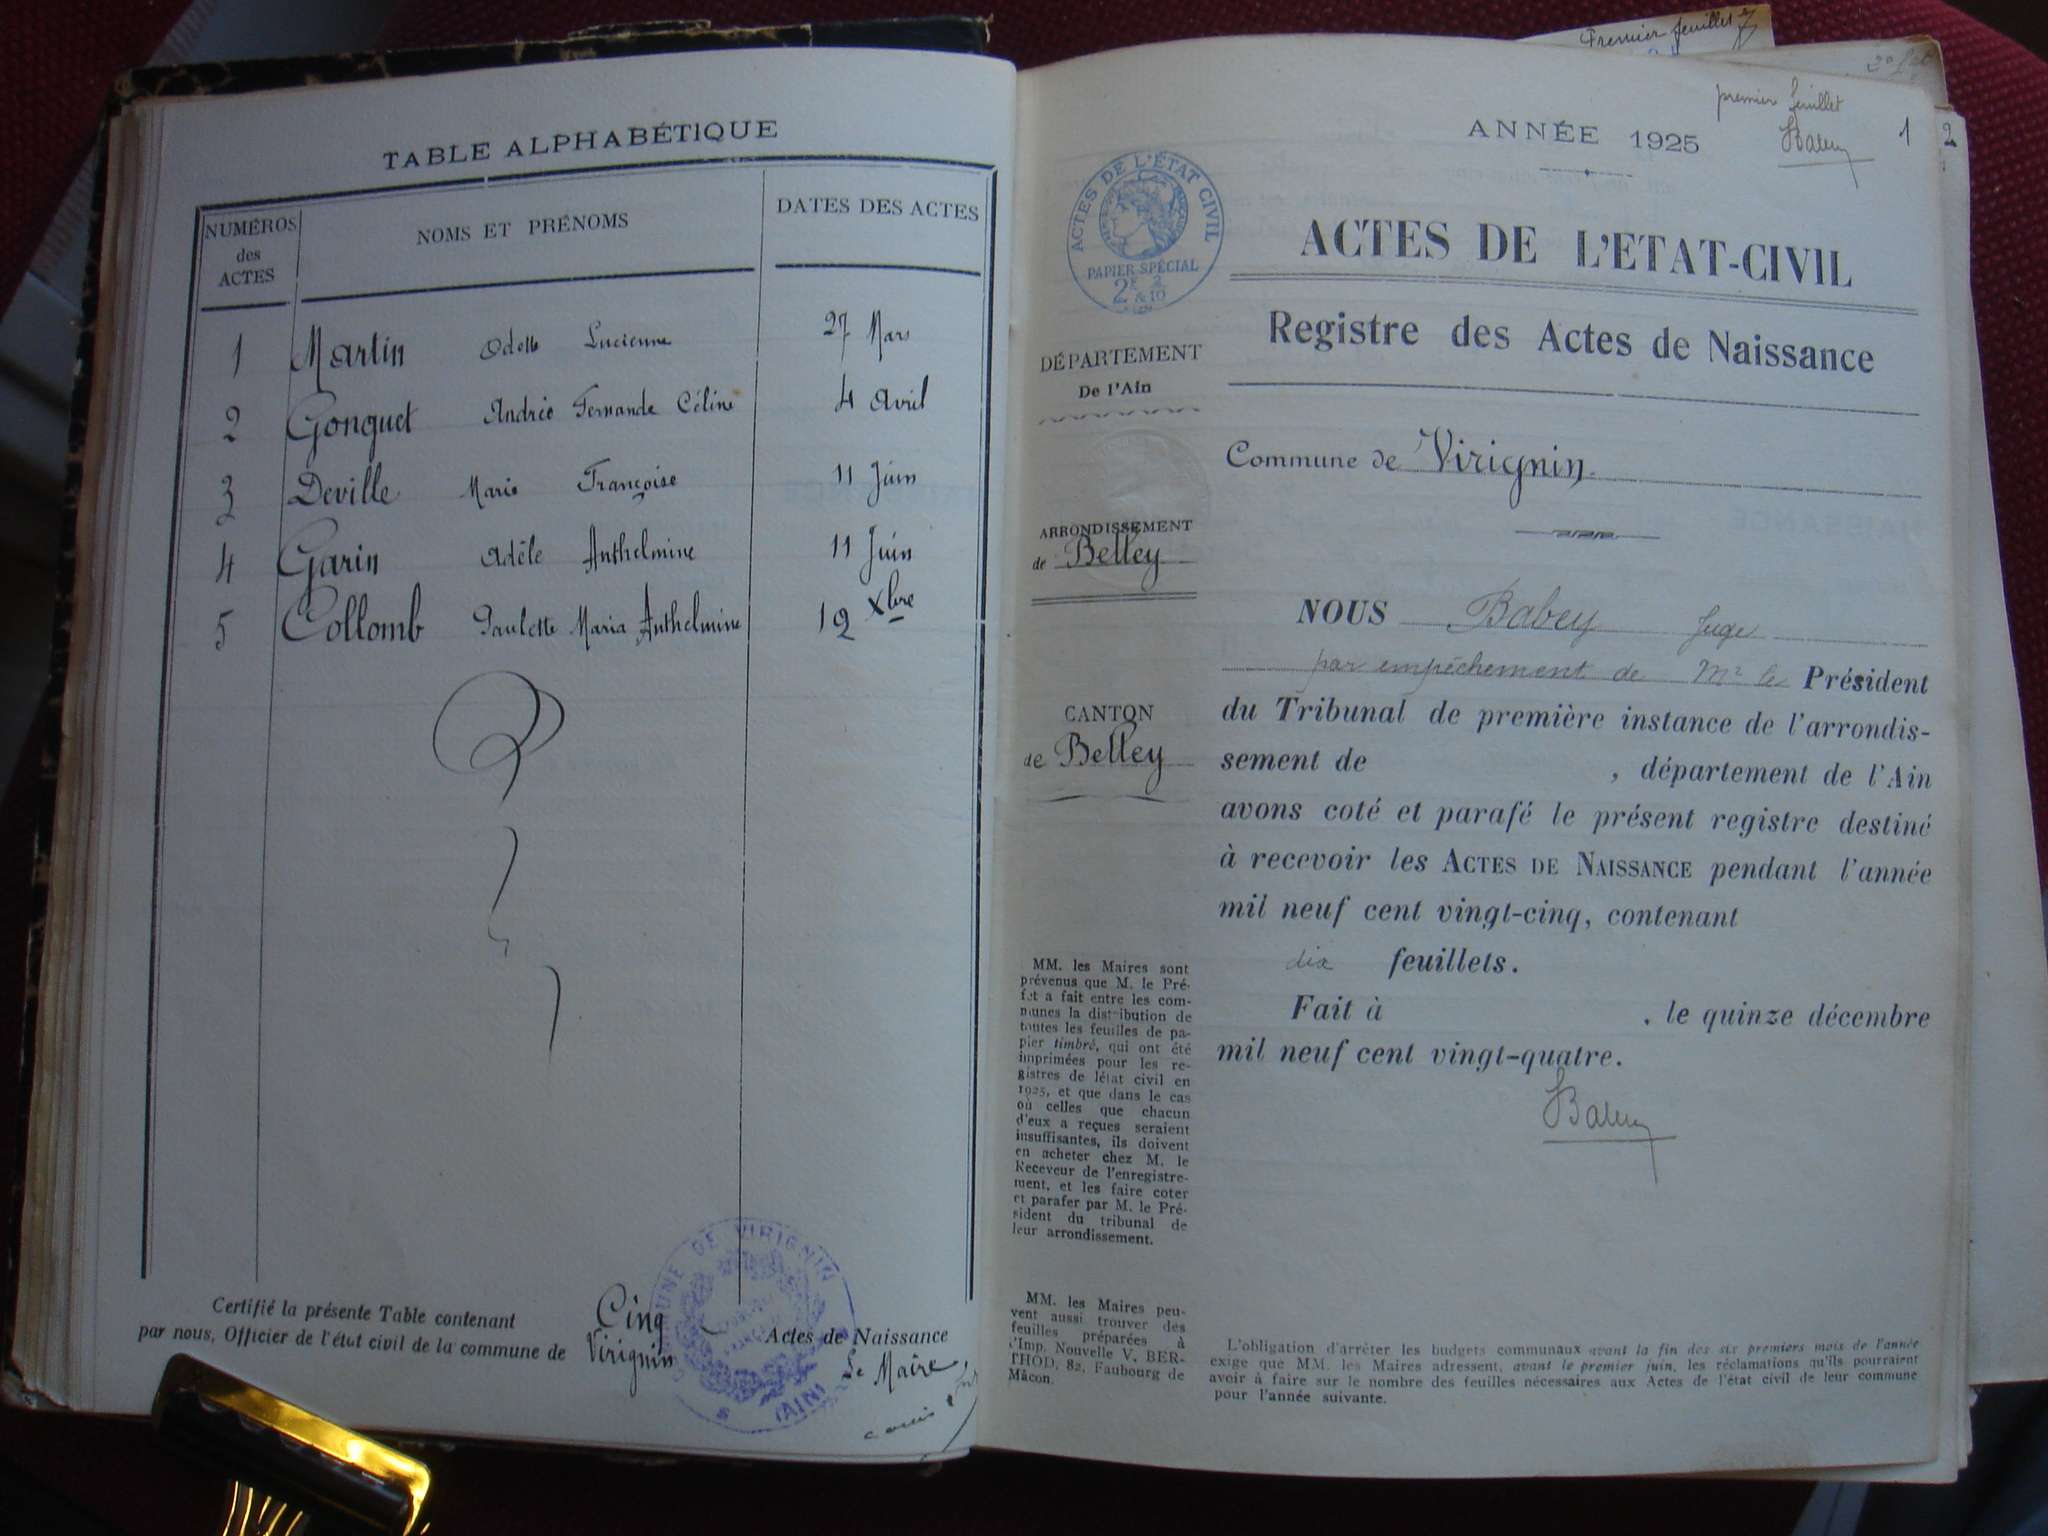 TABLE ALPHABÉTIQUE
NUMÉROS
des
ACTES
NOMS ET PRÉNOMS
DATES DES ACTES
1 Martin Odette Lucienne 27 Mars
2 Gonguet Andrée Fernande Céline 4 Avril
3 Deville Marie Françoise 11 Juin
4 Garin Adèle Anthelmine 11 Juin
5 Collomb Paulette Maria Anthelmine 12 Xbre
Certifié la présente Table contenant Cinq Actes de Naissance
par nous, Officier de l'état civil de la commune de Virignin
Le Maire,
COMMUNE DE VIRIGNIN
(AIN)
Premier feuillet
premier feuillet
Babey
1
2
ANNÉE 1925
ACTES DE L'ÉTAT CIVIL
PAPIER SPÉCIAL
2F 2
&10
ACTES DE L'ETAT-CIVIL
Registre des Actes de Naissance
DÉPARTEMENT
De l'Ain
Commune de Virignin
ARRONDISSEMENT
de Belley
CANTON
de Belley
NOUS Babey Juge
par empêchement de Mr le Président
du Tribunal de première instance de l'arrondis-
sement de , département de l'Ain
avons coté et parafé le présent registre destiné
à recevoir les ACTES DE NAISSANCE pendant l'année
mil neuf cent vingt-cinq, contenant
dix feuillets.
Fait à , le quinze décembre
mil neuf cent vingt-quatre.
Babey
MM. les Maires sont
prévenus que M. le Pré-
fet a fait entre les com-
munes la distribution de
toutes les feuilles de pa-
pier timbré, qui ont été
imprimées pour les re-
gistres de létat civil en
1925, et que dans le cas
où celles que chacun
d'eux a reçues seraient
insuffisantes, ils doivent
en acheter chez M. le
Receveur de l'enregistre-
ment, et les faire coter
et parafer par M. le Pré-
sident du tribunal de
leur arrondissement.
MM. les Maires peu-
vent aussi trouver des
feuilles préparées à
l'Imp. Nouvelle V. BER-
THOD, 82, Faubourg de
Mâcon.
L'obligation d'arrêter les budgets communaux avant la fin des six premiers mois de l'année
exige que MM. les Maires adressent, avant le premier juin, les réclamations qu'ils pourraient
avoir à faire sur le nombre des feuilles nécessaires aux Actes de l'état civil de leur commune
pour l'année suivante.